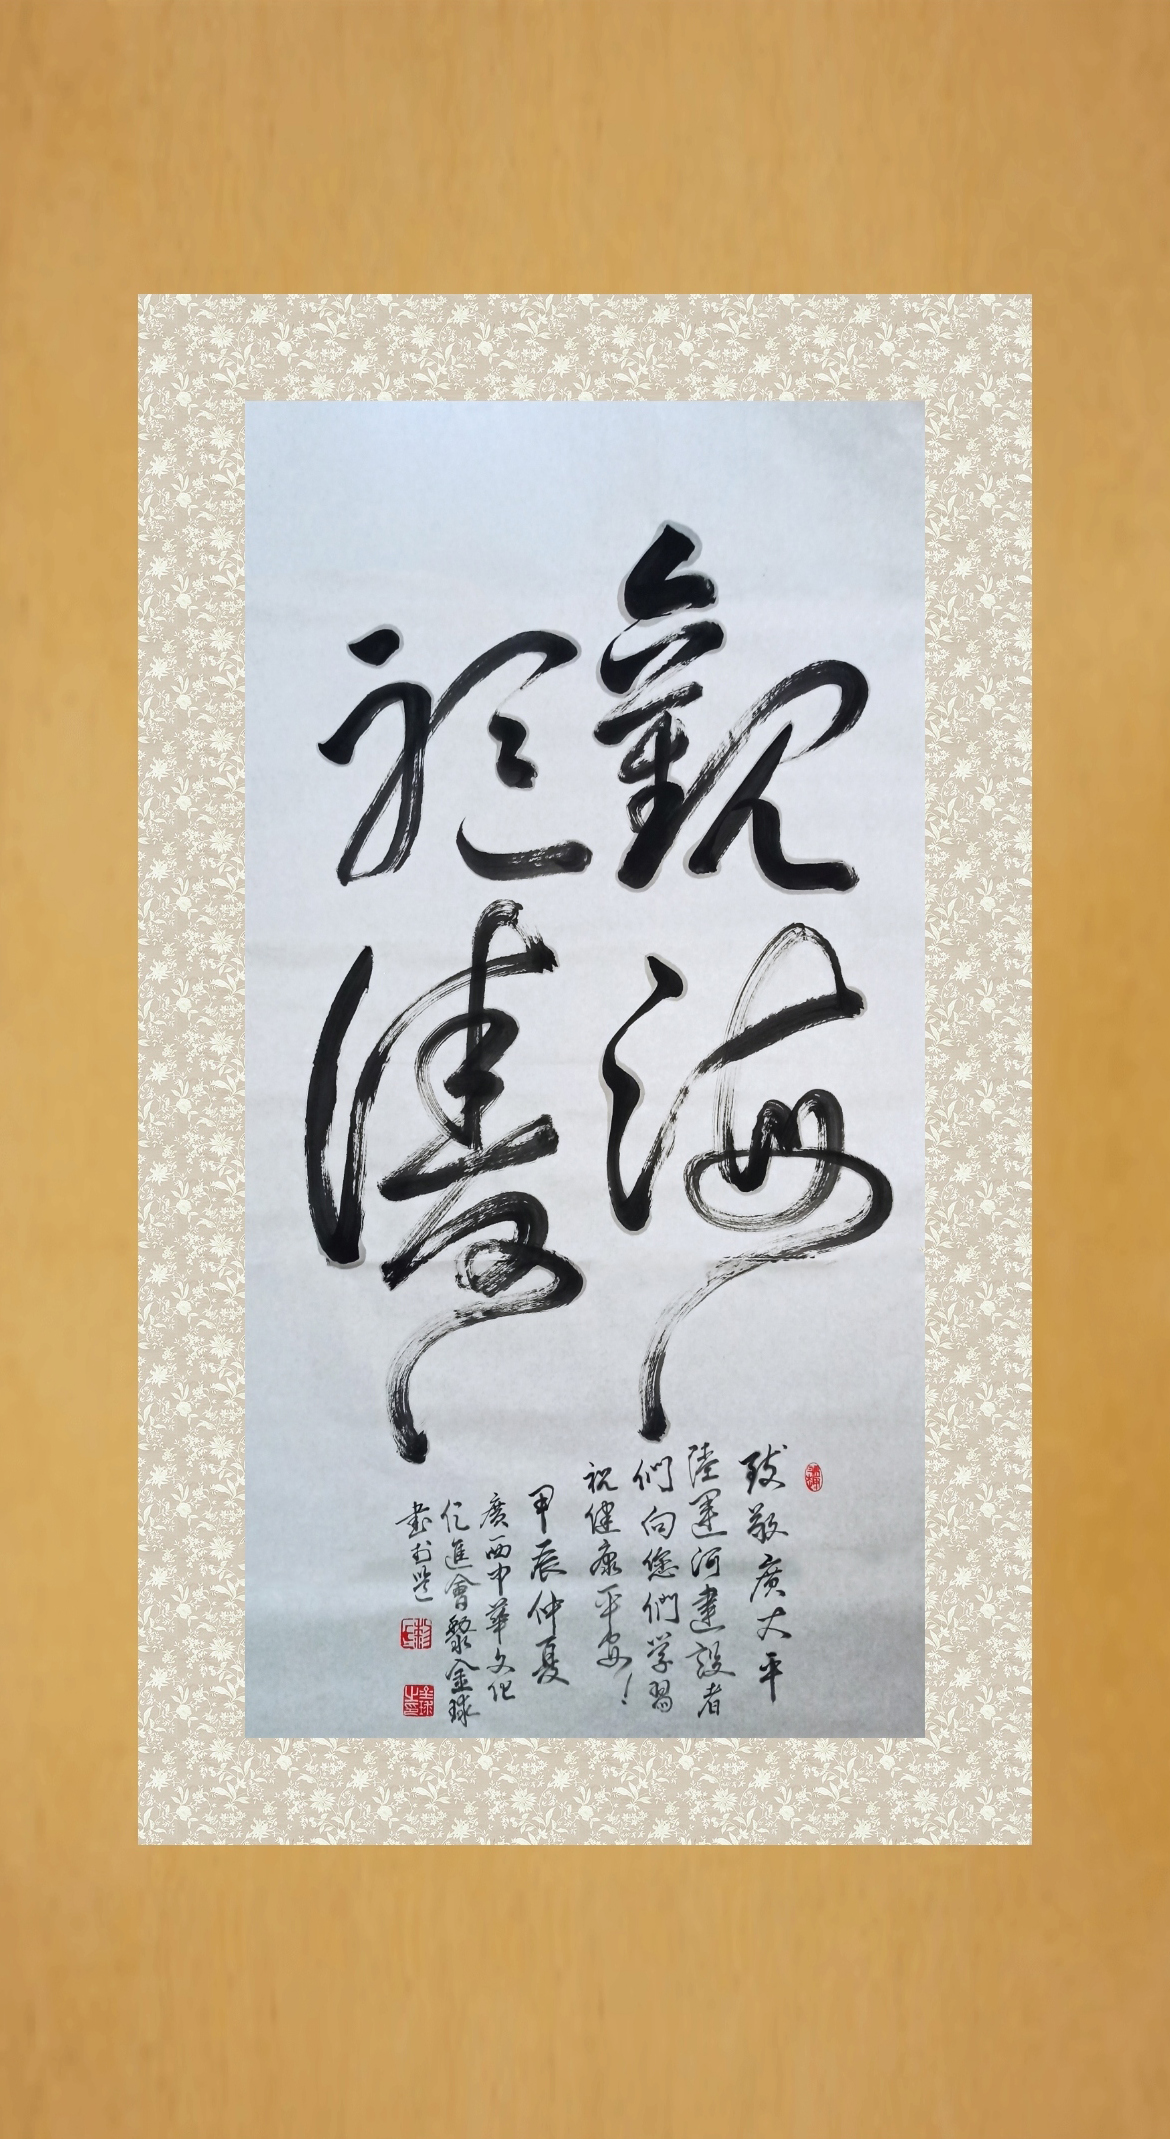 觀海
聽濤
致敬廣大平
陸運河建設者
們向您們学習
祝健康平安！
甲辰仲夏
廣西中華文化
促進會黎金球
書於邕